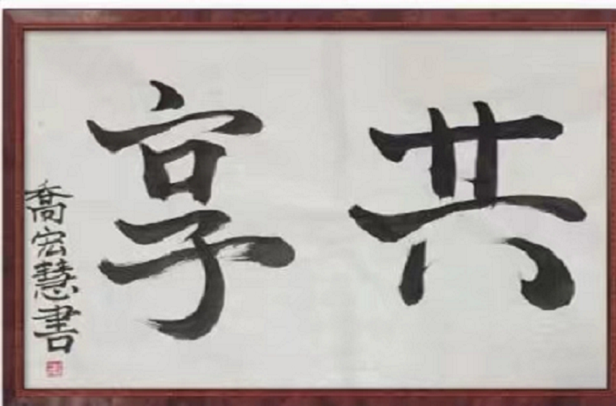 共享
喬宏慧書